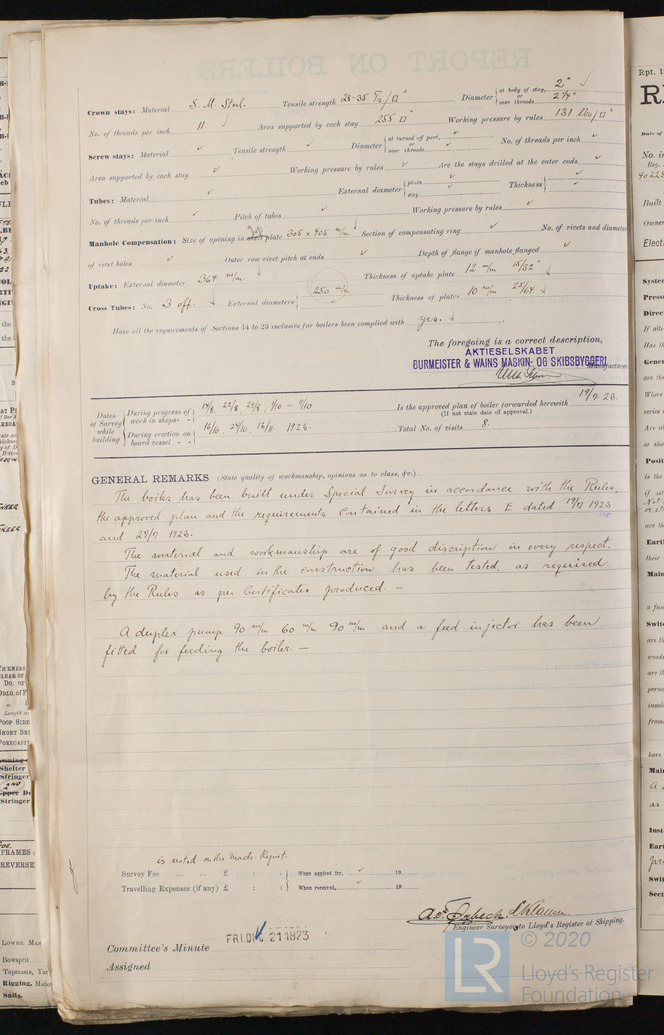 Crown stays: Material S. M. Steel. Tensile strength 28-35 Ts/□" Diameter at body of stay, or over threads 2" 2 1/4"
No. of threads per inch 11 Area supported by each stay 255 □" Working pressure by rules 131 lbs/□"
Screw stays: Material ✓ Tensile strength ✓ Diameter at turned off part, or over threads ✓ No. of threads per inch ✓
Area supported by each stay ✓ Working pressure by rules ✓ Are the stays drilled at the outer ends ✓
Tubes: Material ✓ External diameter plain stay ✓ Thickness ✓
No. of threads per inch ✓ Pitch of tubes ✓ Working pressure by rules ✓
Manhole Compensation: Size of opening in shell plate 305 x 405 m/m Section of compensating ring ✓ No. of rivets and diameter
of rivet holes ✓ Outer row rivet pitch at ends ✓ Depth of flange if manhole flanged ✓
Uptake: External diameter 364 m/m. Thickness of uptake plate 12 m/m 15/32"
Cross Tubes: No. 3 off. External diameters 250 m/m. Thickness of plates 10 m/m 25/64"
Have all the requirements of Sections 14 to 23 inclusive for boilers been complied with yes.
The foregoing is a correct description,
AKTIESELSKABET
BURMEISTER & WAINS MASKIN- OG SKIBSBYGGERI Manufacturer.
Dates of Survey while building
During progress of work in shops - - 14/8, 22/8, 24/8, 1/10 - 9/10
During erection on board vessel - - 16/10, 24/10, 16/11. 1923.
Is the approved plan of boiler forwarded herewith 19/7 23.
(If not state date of approval.)
Total No. of visits 8.
GENERAL REMARKS (State quality of workmanship, opinions as to class, &c.)
The boiler has been built under Special Survey in accordance with the Rules,
the approved plan and the requirements contained in the letters E dated 19/7 1923
and 27/7 1923.
The material and workmanship are of good discription in every respect.
The material used in the construction has been tested, as required
by the Rules as per Certificates produced. —
A duplex pump 90 m/m 60 m/m 90 m/m and a feed injector has been
fitted for feeding the boiler. —
is noted on the Mach. Report.
Survey Fee ... ... £ : : When applied for, ✓ 19
Travelling Expenses (if any) £ : : When received, ✓ 19
Engineer Surveyors to Lloyd's Register of Shipping.
Committee's Minute FRI. DEC. 21 1923
Assigned
LR © 2020
Lloyd's Register
Foundation